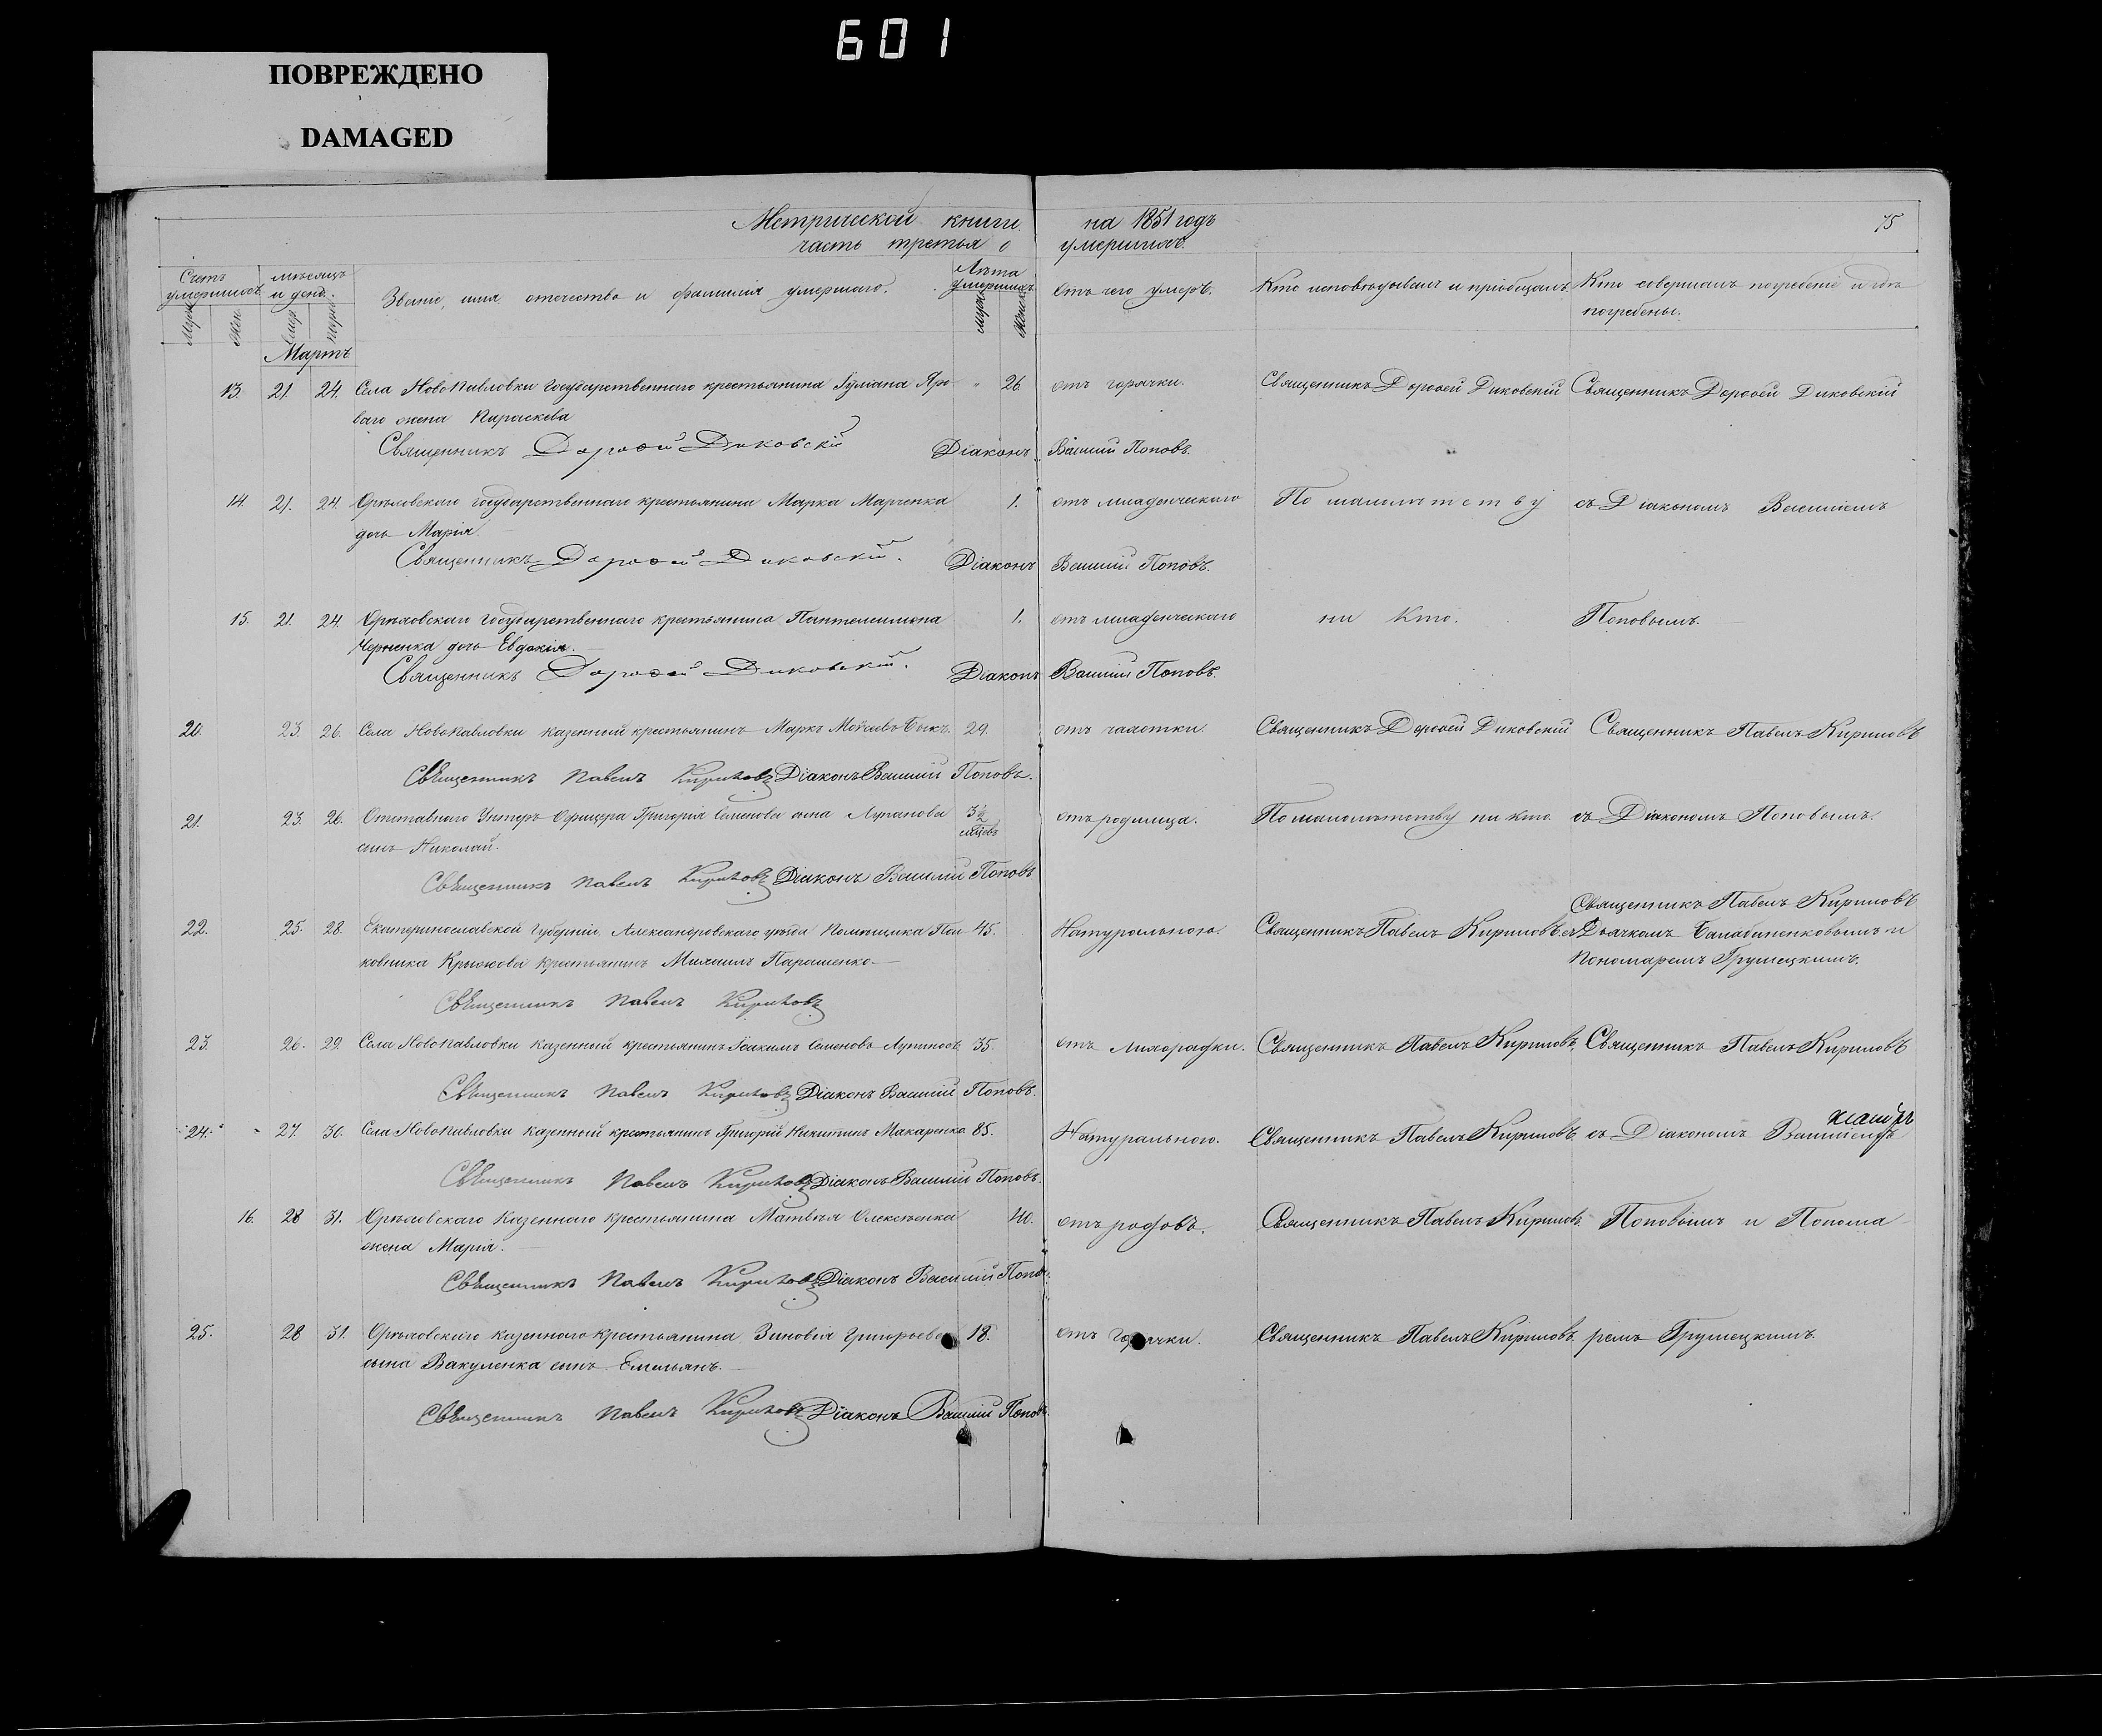 601
ПОВРЕЖДЕНО
DAMAGED
Метрической книги на 1851 годъ 75
часть третья о умершихъ.
Счетъ умершихъ мѣсяцъ и день. Званіе, имя отечество и фамилія умершаго. Лѣта умершихъ отъ чего умеръ. Кто исповѣдывалъ и пріобщалъ. Кто совершалъ погребеніе и гдѣ погребены.
Муж Жен Муж Женс
Мартъ
13. 21. 24. Села Новопавловки государственнаго крестьянина Гуляна Яро " 26 отъ горячки. Священникъ Дорофей Диковскій Священникъ Дорофей Диковскій
ваго жена Параскева
Священникъ Дорофей Диковскій Діаконъ Василій Поповъ.
14. 21. 24. Орѣховскаго государственнаго крестьянина Марка Марченка 1. отъ младенческаго По малолѣтству съ Діакономъ Василіемъ
дочь Марія.
Священникъ Дорофей Диковскій. Діаконъ Василій Поповъ.
15. 21. 24. Орѣховскаго государственнаго крестьянина Пантелеимона 1. отъ младенческаго ни кто. Поповымъ.
Черненка дочь Евдокія.
Священникъ Дорофей Диковскій. Діаконъ Василій Поповъ.
20. 23. 26. Села Новопавловки казенный крестьянинъ Маркъ Моисеевъ Быкъ. 29. отъ чахотки. Священникъ Дорофей Диковскій Священникъ Павелъ Кириловъ
Священникъ Павелъ Кириловъ Діаконъ Василій Поповъ.
21. 23. 26. Отставного Унтеръ-Офицера Григорія Семенова сына Лупанова 3½ отъ родимца. По малолѣтству ни кто. съ Діакономъ Поповымъ.
сынъ Николай.
Священникъ Павелъ Кириловъ Діаконъ Василій Поповъ
Священникъ Павелъ Кириловъ
22. 25. 28. Екатеринославской Губерніи, Александровскаго уѣзда Помѣщика Пол 45. Натурально. Священникъ Павелъ Кириловъ. съ Дьячкомъ Балабиненковымъ и
ковника Крыжова крестьянинъ Михаилъ Парашенко. Пономаремъ Грушецкимъ.
Священникъ Павелъ Кириловъ
23. 26. 29. Села Новопавловки казенный крестьянинъ Іоакимъ Семеновъ Лупиносъ. 35. отъ лихорадки. Священникъ Павелъ Кириловъ. Священникъ Павелъ Кириловъ
Священникъ Павелъ Кириловъ Діаконъ Василій Поповъ.
24. " 27. 30. Села Новопавловки казенный крестьянинъ Григорій Никитинъ Макаренко 85. Натурального. Священникъ Павелъ Кириловъ. съ Діакономъ Василіемъ
Священникъ Павелъ Кириловъ Діаконъ Василій Поповъ.
16. 28 31. Орѣховскаго казеннаго крестьянина Матвѣя Олексѣенка 40. отъ родовъ. Священникъ Павелъ Кириловъ. Поповымъ и Понома
жена Марія.
Священникъ Павелъ Кириловъ Діаконъ Василій Попов
25. 28 31. Орѣховскаго казеннаго крестьянина Зиновія Григорьева 18. отъ горячки. Священникъ Павелъ Кириловъ. ремъ Грушецкимъ.
сына Вакуленка сынъ Емельянъ.
Священникъ Павелъ Кириловъ Діаконъ Василій Поповъ.